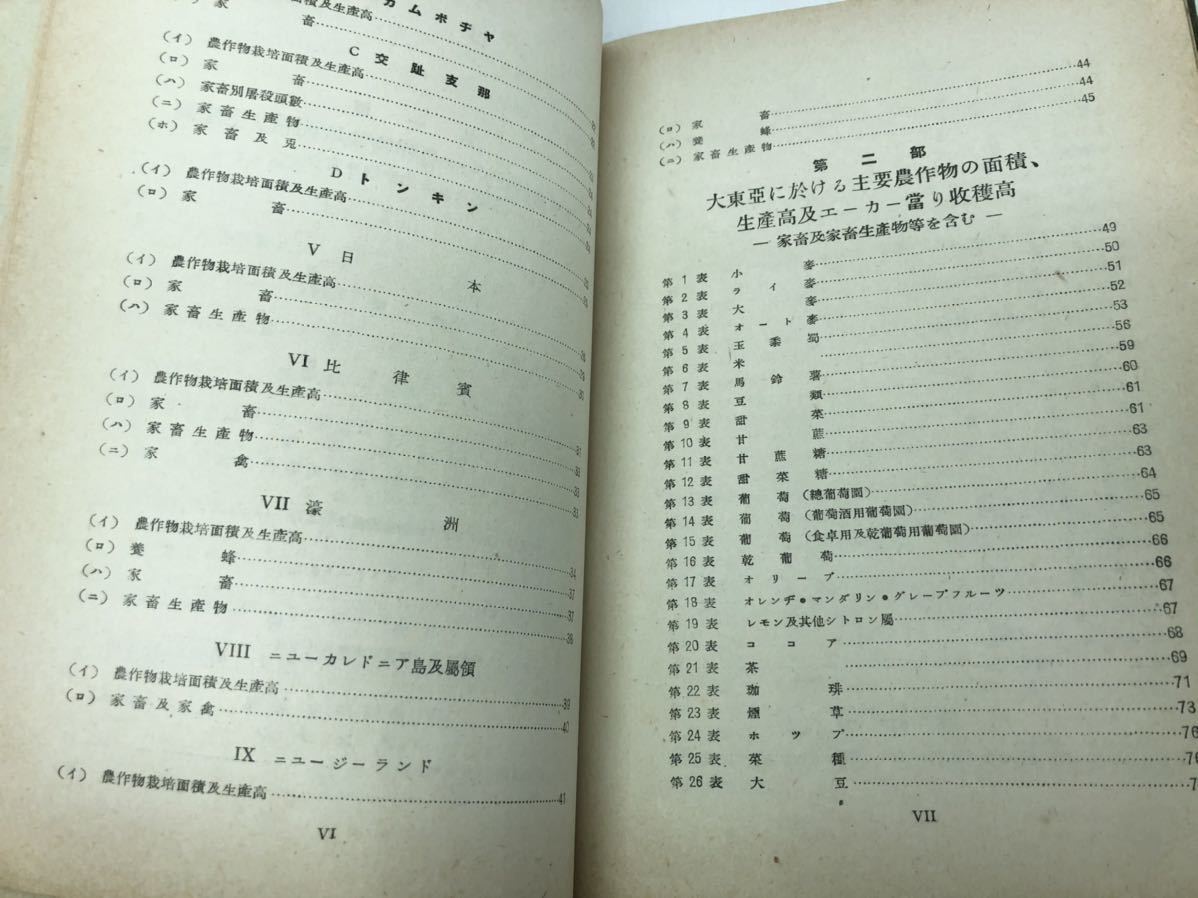 カムボチヤ
農作物栽培面積及生産高
(ロ) 家畜
C 交趾支那
(イ) 農作物栽培面積及生産高
(ロ) 家畜
(ハ) 家畜別屠殺頭數
(ニ) 家畜生産物
(ホ) 家畜及兎
D トンキン
(イ) 農作物栽培面積及生産高
(ロ) 家畜
V 日本
(イ) 農作物栽培面積及生産高
(ロ) 家畜
(ハ) 家畜生産物
VI 比律賓
(イ) 農作物栽培面積及生産高
(ロ) 家畜
(ハ) 家畜生産物
(ニ) 家禽
VII 濠洲
(イ) 農作物栽培面積及生産高 34
(ロ) 養蜂 37
(ハ) 家畜 37
(ニ) 家畜生産物 38
VIII ニユーカレドニア島及屬領
(イ) 農作物栽培面積及生産高 39
(ロ) 家畜及家禽 40
IX ニユージーランド
(イ) 農作物栽培面積及生産高 41
VI
(ロ) 家畜 44
(ハ) 養蜂 44
(ニ) 家畜生産物 45
第二部
大東亞に於ける主要農作物の面積、
生産高及エーカー當り收穫高
― 家畜及家畜生産物等を含む ―
第1表 小麥 49
第2表 ライ麥 50
第3表 大麥 51
第4表 オート麥 52
第5表 玉蜀黍 53
第6表 米 56
第7表 馬鈴薯 59
第8表 豆類 60
第9表 甜菜 61
第10表 甘蔗 61
第11表 甘蔗糖 63
第12表 甜菜糖 63
第13表 葡萄(總葡萄園) 64
第14表 葡萄(葡萄酒用葡萄園) 65
第15表 葡萄(食卓用及乾葡萄用葡萄園) 65
第16表 乾葡萄 66
第17表 オリーブ 66
第18表 オレンヂ•マンダリン•グレープフルーツ 67
第19表 レモン及其他シトロン屬 67
第20表 ココア 68
第21表 茶 69
第22表 珈琲 71
第23表 煙草 73
第24表 ホツプ 76
第25表 菜種 76
第26表 大豆
VII